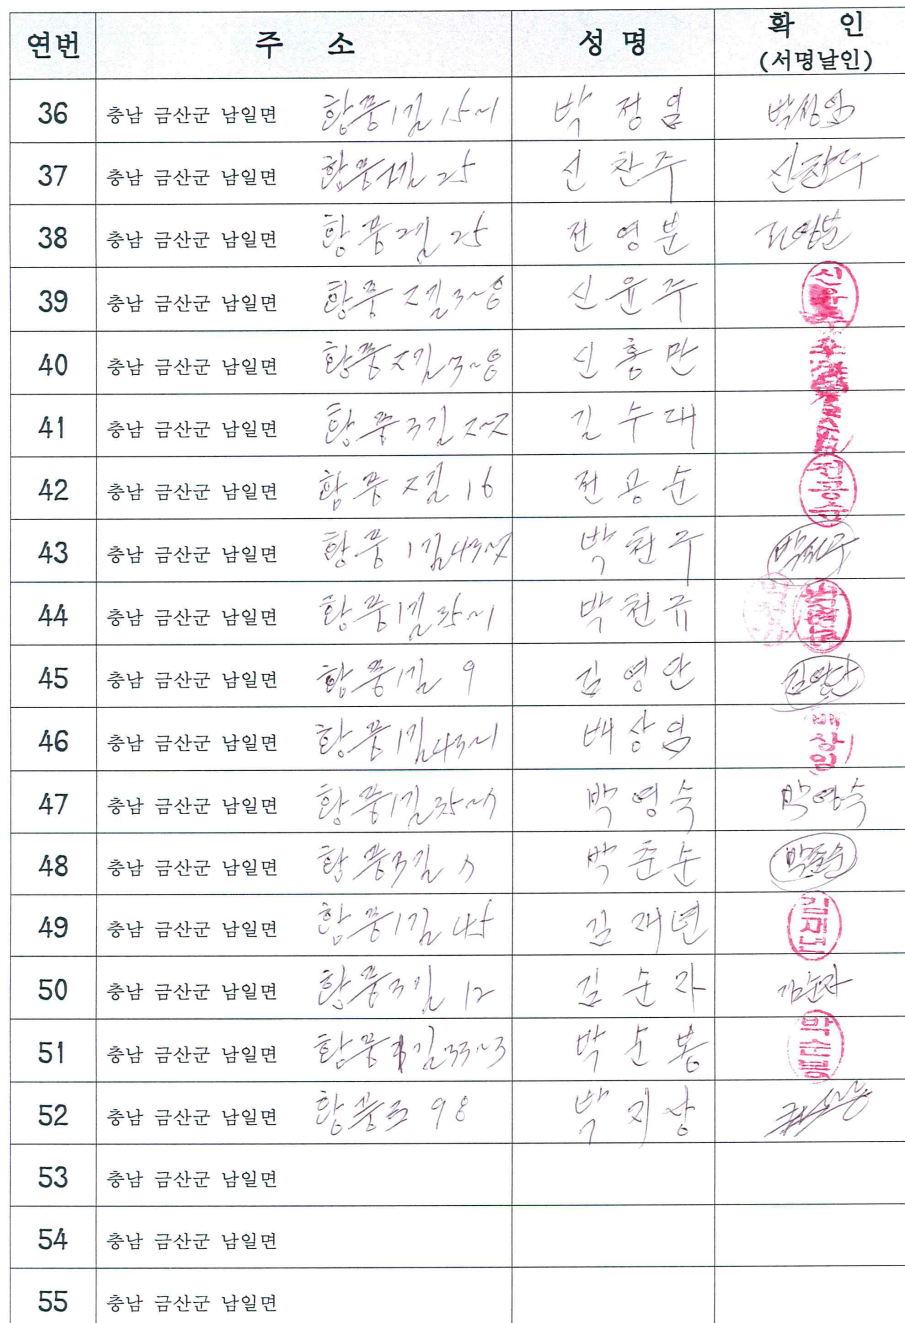 연번 주 소 성 명 확 인
(서명날인)
36 충남 금산군 남일면 황풍1길 15~1 박정임 박정임
37 충남 금산군 남일면 황풍 25 신찬주 신찬주
38 충남 금산군 남일면 황풍2길 25 전영분 전영분
39 충남 금산군 남일면 황풍2길 3~8 신윤주 신윤주
40 충남 금산군 남일면 황풍2길 3~8 신홍만
41 충남 금산군 남일면 황풍3길 2~2 김수대
42 충남 금산군 남일면 황풍2길 16 전공순
43 충남 금산군 남일면 황풍1길 43~2 박헌구
44 충남 금산군 남일면 황풍1길 35~1 박천규
45 충남 금산군 남일면 황풍1길 9 김영안
46 충남 금산군 남일면 황풍1길 43~1 배상임 배상임
47 충남 금산군 남일면 황풍1길 박영숙 박영숙
48 충남 금산군 남일면 황풍3길 박준순
49 충남 금산군 남일면 황풍1길 45 김재년 김재년
50 충남 금산군 남일면 황풍3길 12 김순자 김순자
51 충남 금산군 남일면 황풍1길 33~3 박순봉 박순봉
52 충남 금산군 남일면 황풍로 98 박지상
53 충남 금산군 남일면
54 충남 금산군 남일면
55 충남 금산군 남일면